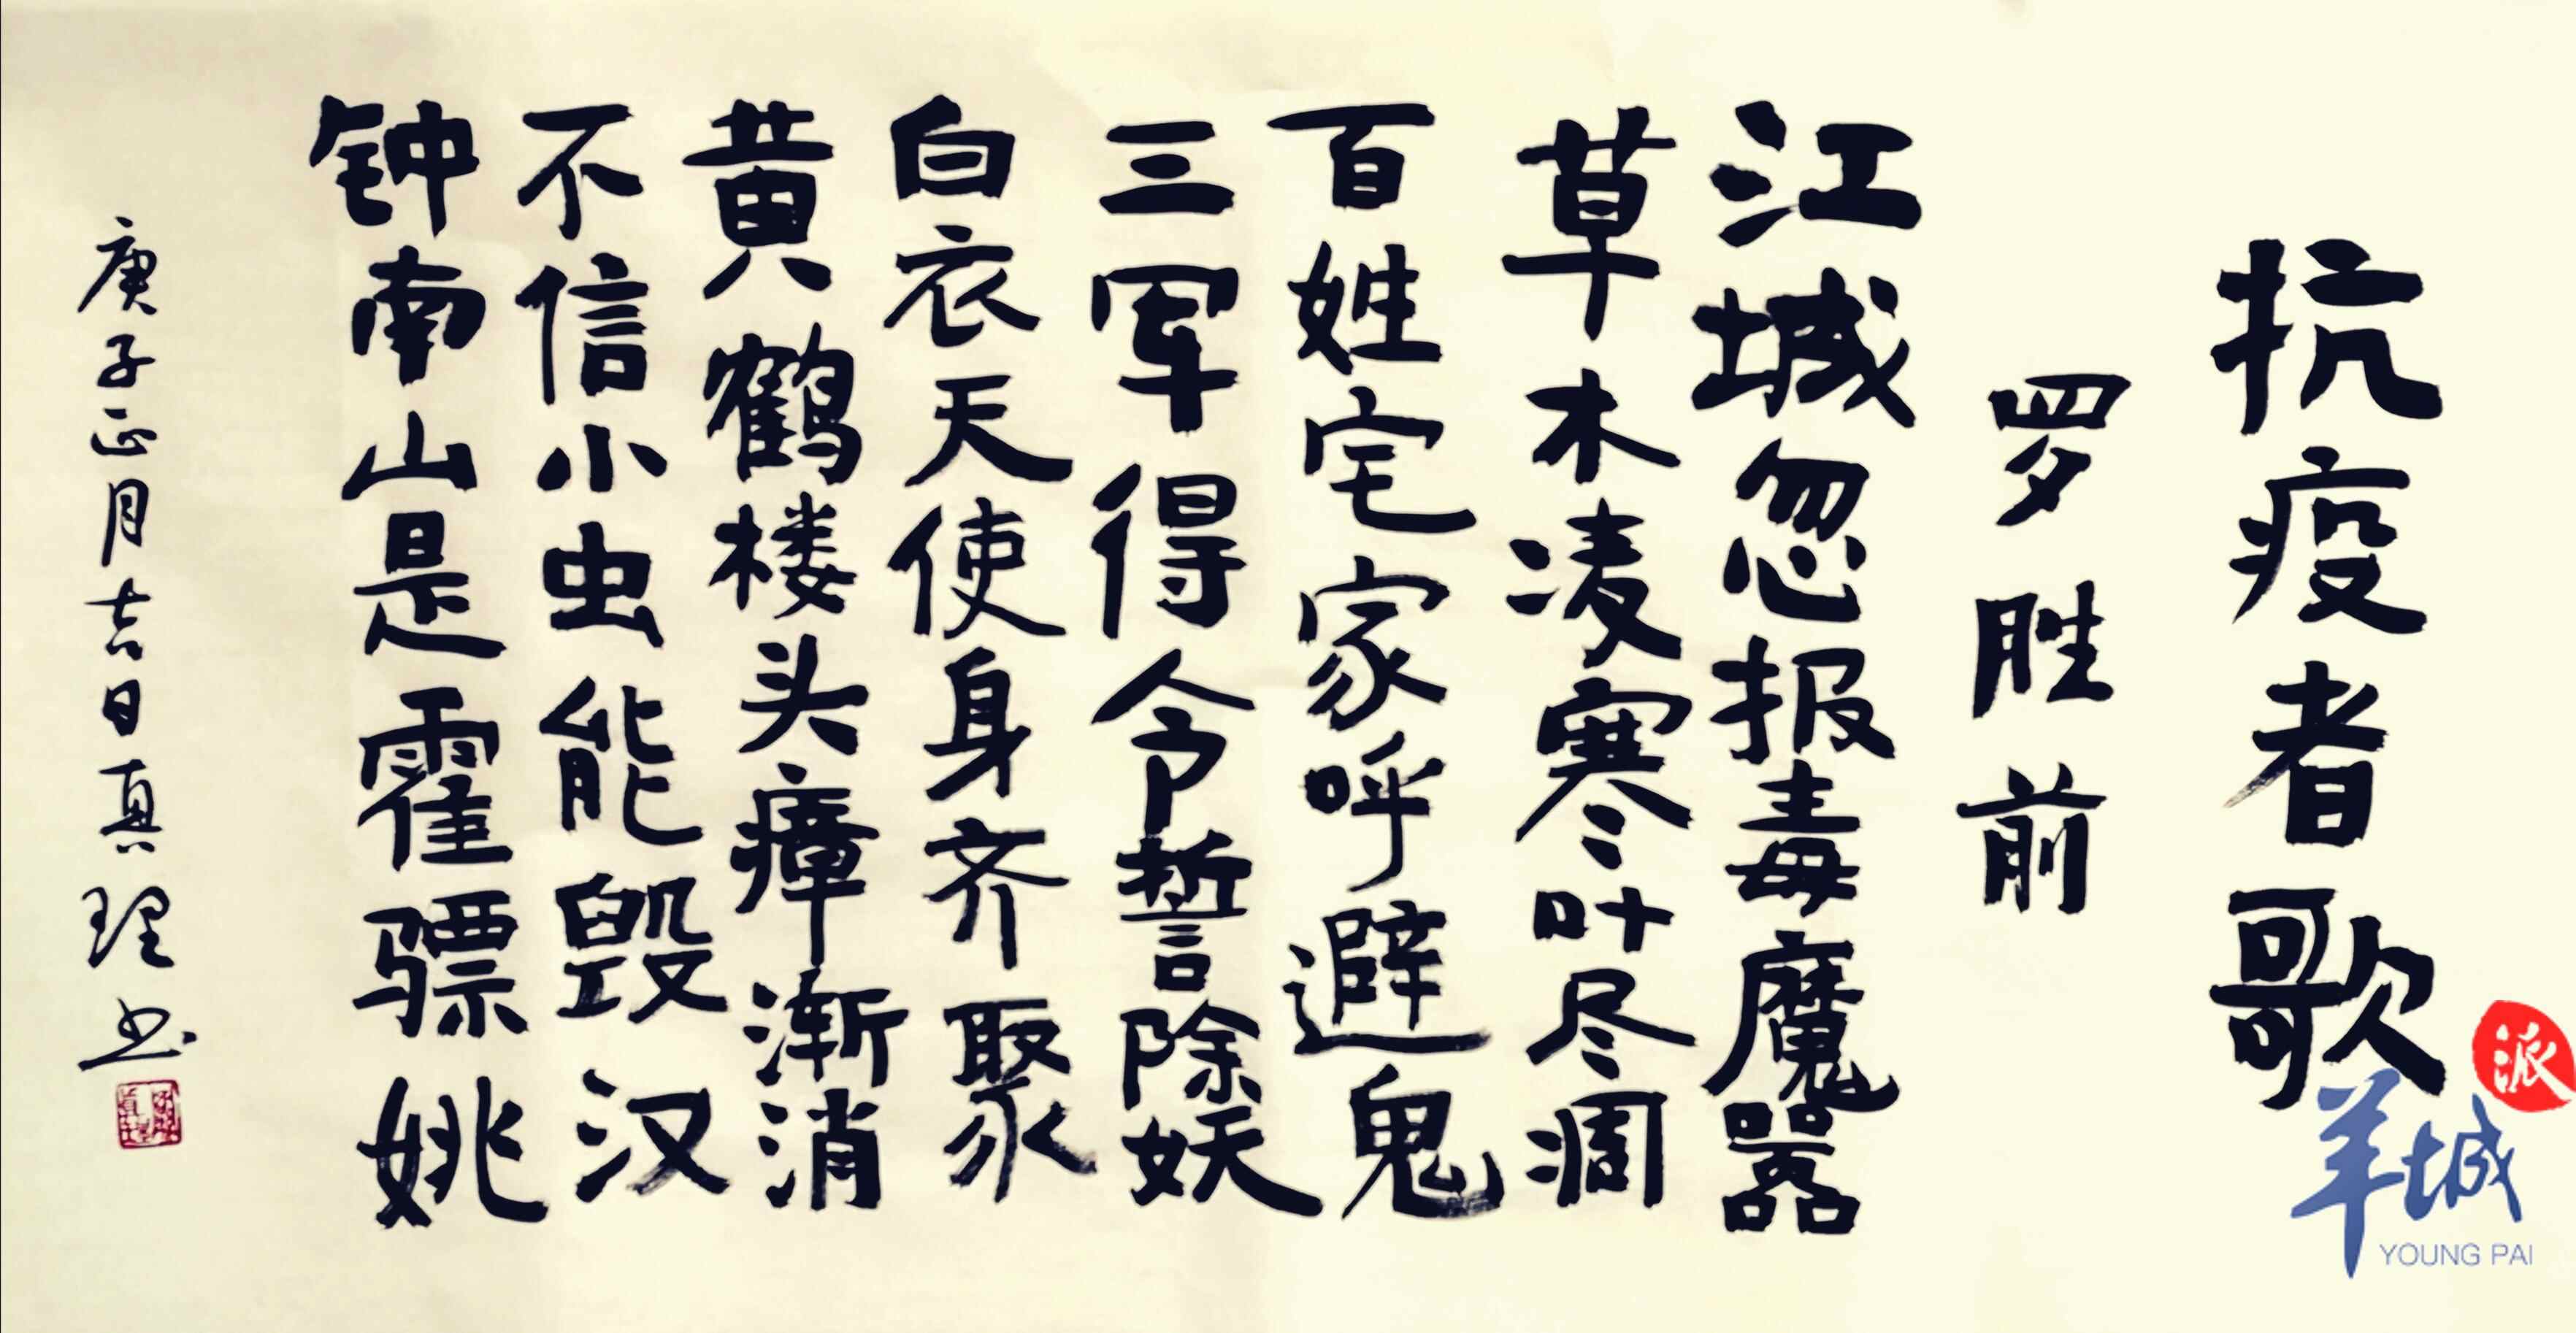 抗疫者歌
罗胜前
江城忽报毒魔嚣
草木凌寒叶尽凋
百姓宅家呼避鬼
三军得令誓除妖
白衣天使身齐聚
黄鹤楼头瘴渐消
不信小虫能毁汉
钟南山是霍骠姚
庚子正月吉日真理书
派
羊城
YOUNG PAI